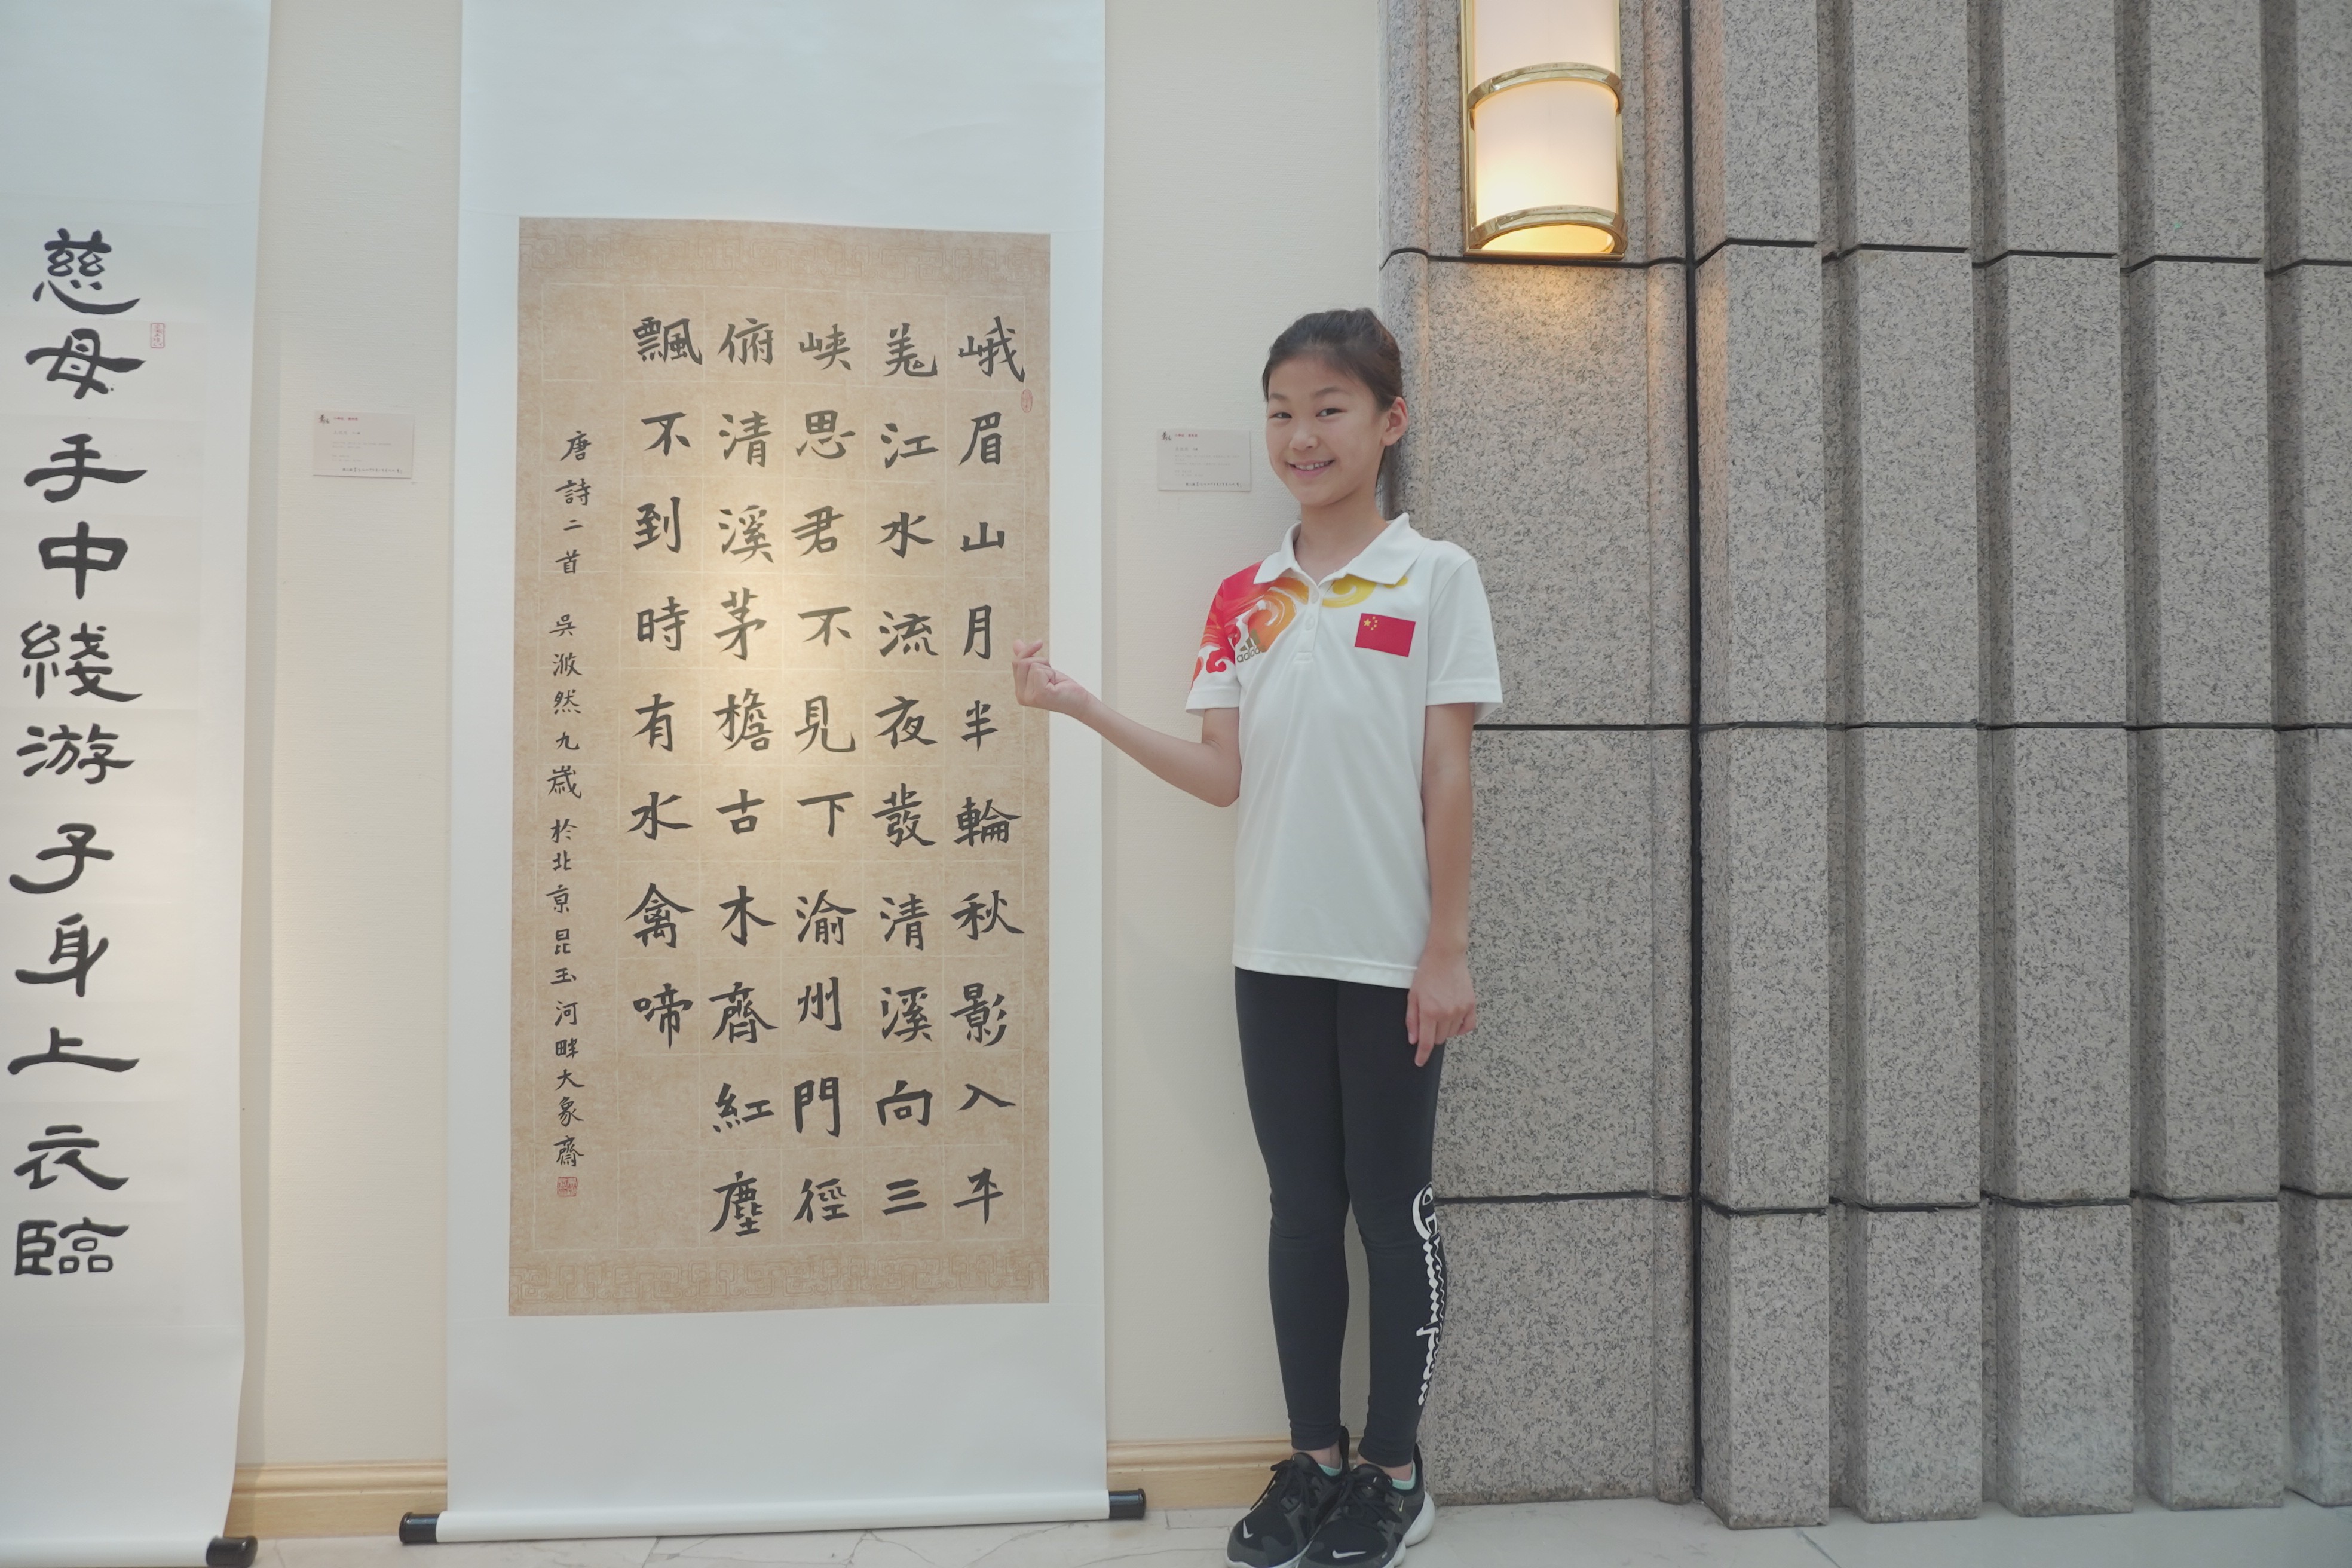 峨眉山月半輪秋影入平
羌江水流夜發清溪向三
峽思君不見下渝州門徑
俯清溪茅檐古木齊紅塵
飄不到時有水禽啼
唐詩二首 吳然九歲於北京昆玉河畔大象齋
慈母手中綫游子身上衣臨
adidas
Champion